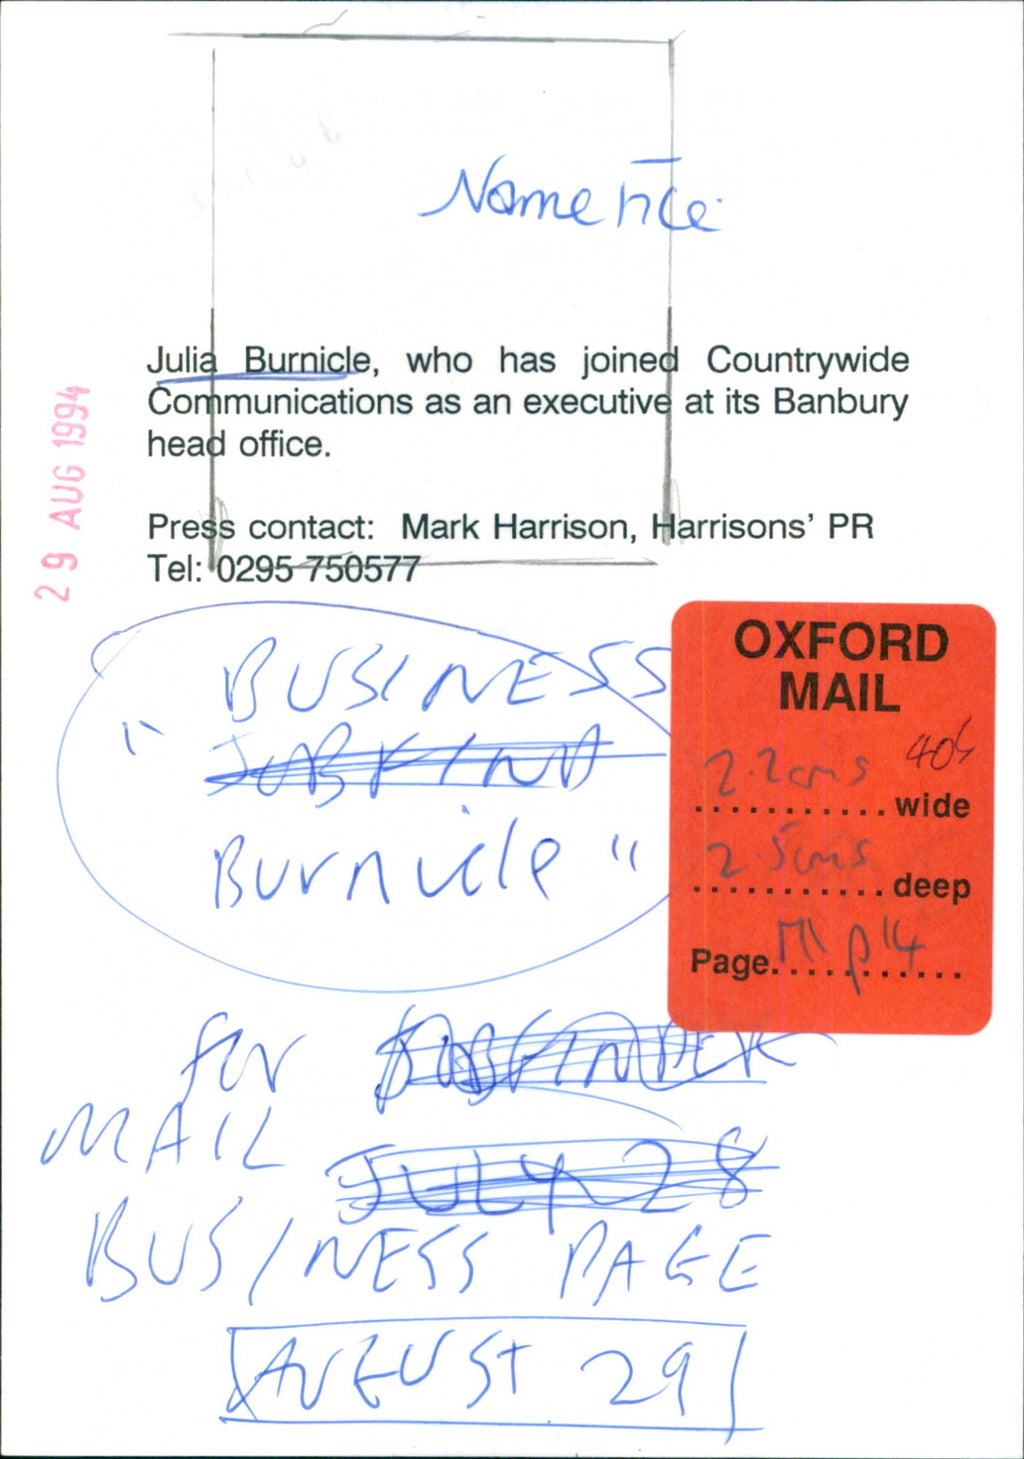 Name
Julia Burnicle, who has joined Countrywide
Communications as an executive at its Banbury
head office.
Press contact: Mark Harrison, Harrisons' PR
Tel: 0295 750577
29 AUG 1994
"BUSINESS
Burnicle"
OXFORD
MAIL
2.2cms
wide
2.5cms
deep
Page
p14
for JOBFINDER
MAIL JULY 28
BUSINESS PAGE
AUGUST 29